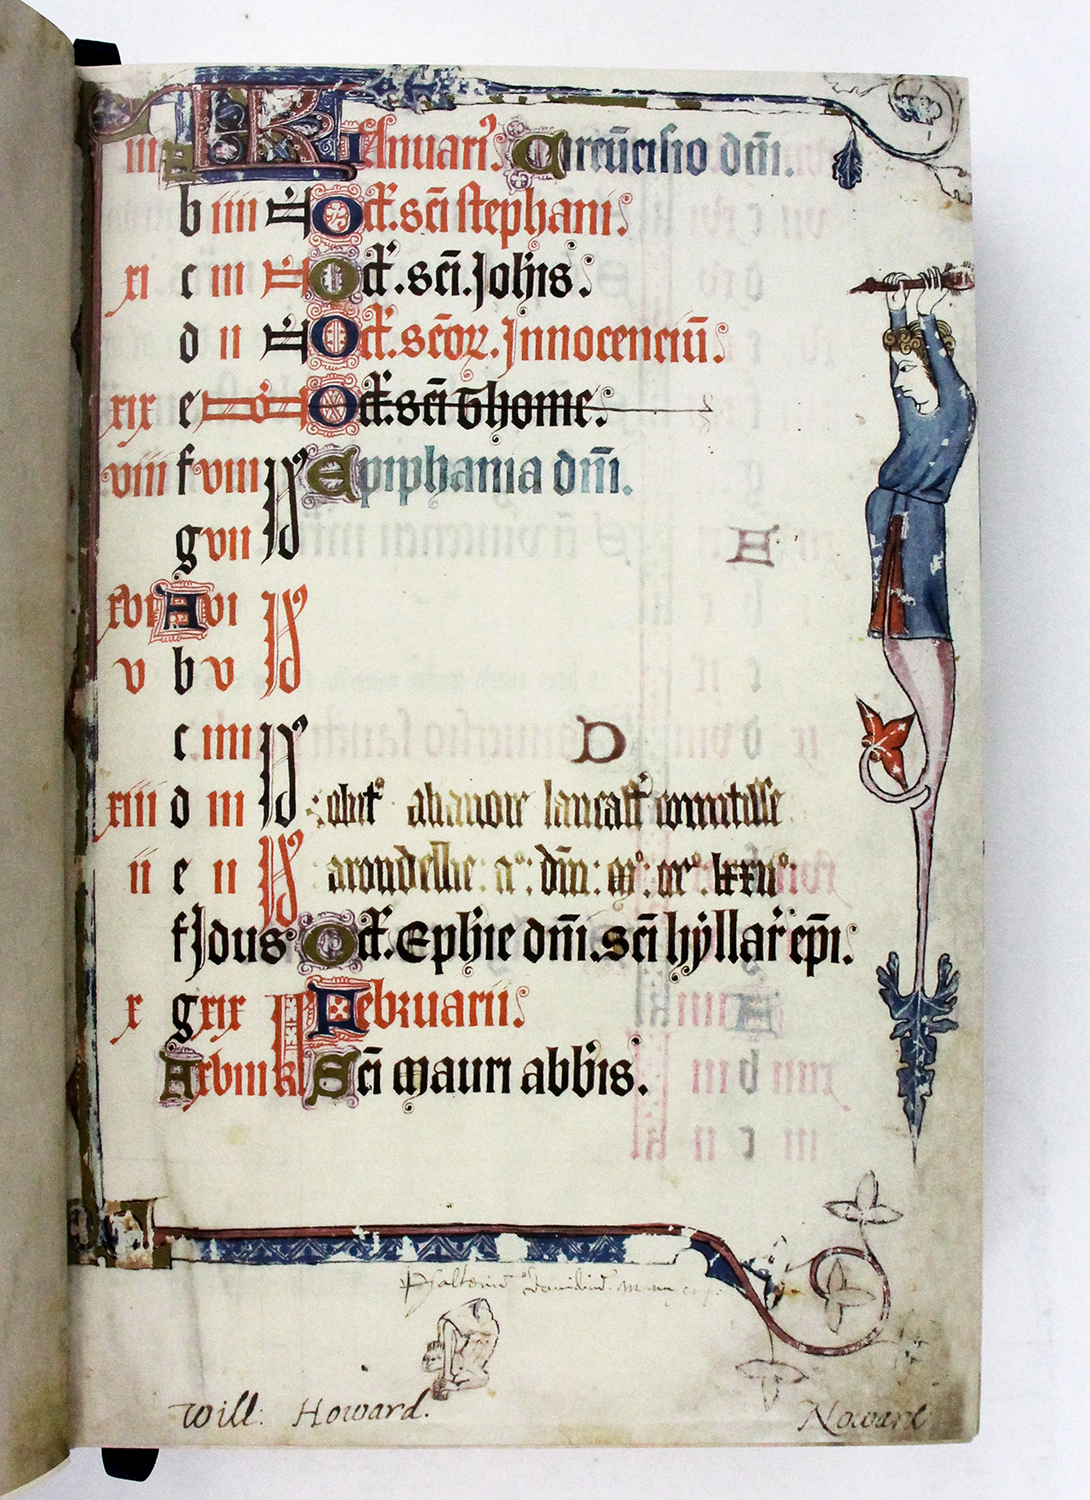 iii A KL Ianuariꝰ. Circūcisio dn̄i.
b iiii N Oct̄. sc̄i stephani.
xi c iii N Oct̄. sc̄i. Joh̄is.
d ii N Oct̄. sc̄oꝝ. Innocenciū.
xix e No Oct̄. sc̄i thome.
viii f viii Id Epiphania dn̄i.
g vii Id
A
xvi A vi Id
v b v Id
c iiii Id
D
xiii d iii Id obitꝰ alianore lancastꝰ comitisse
ii e ii Id arondellie: aº: dn̄i: mº: ccº: lxxiiº:
f Idus Oct̄. Ephie dn̄i. sc̄i hyllarꝰ ep̄i.
x g xix kl Februarii.
A xviii kl Sc̄i mauri abb̄is.
Psalterium Davidicum
Will: Howard.
Howard